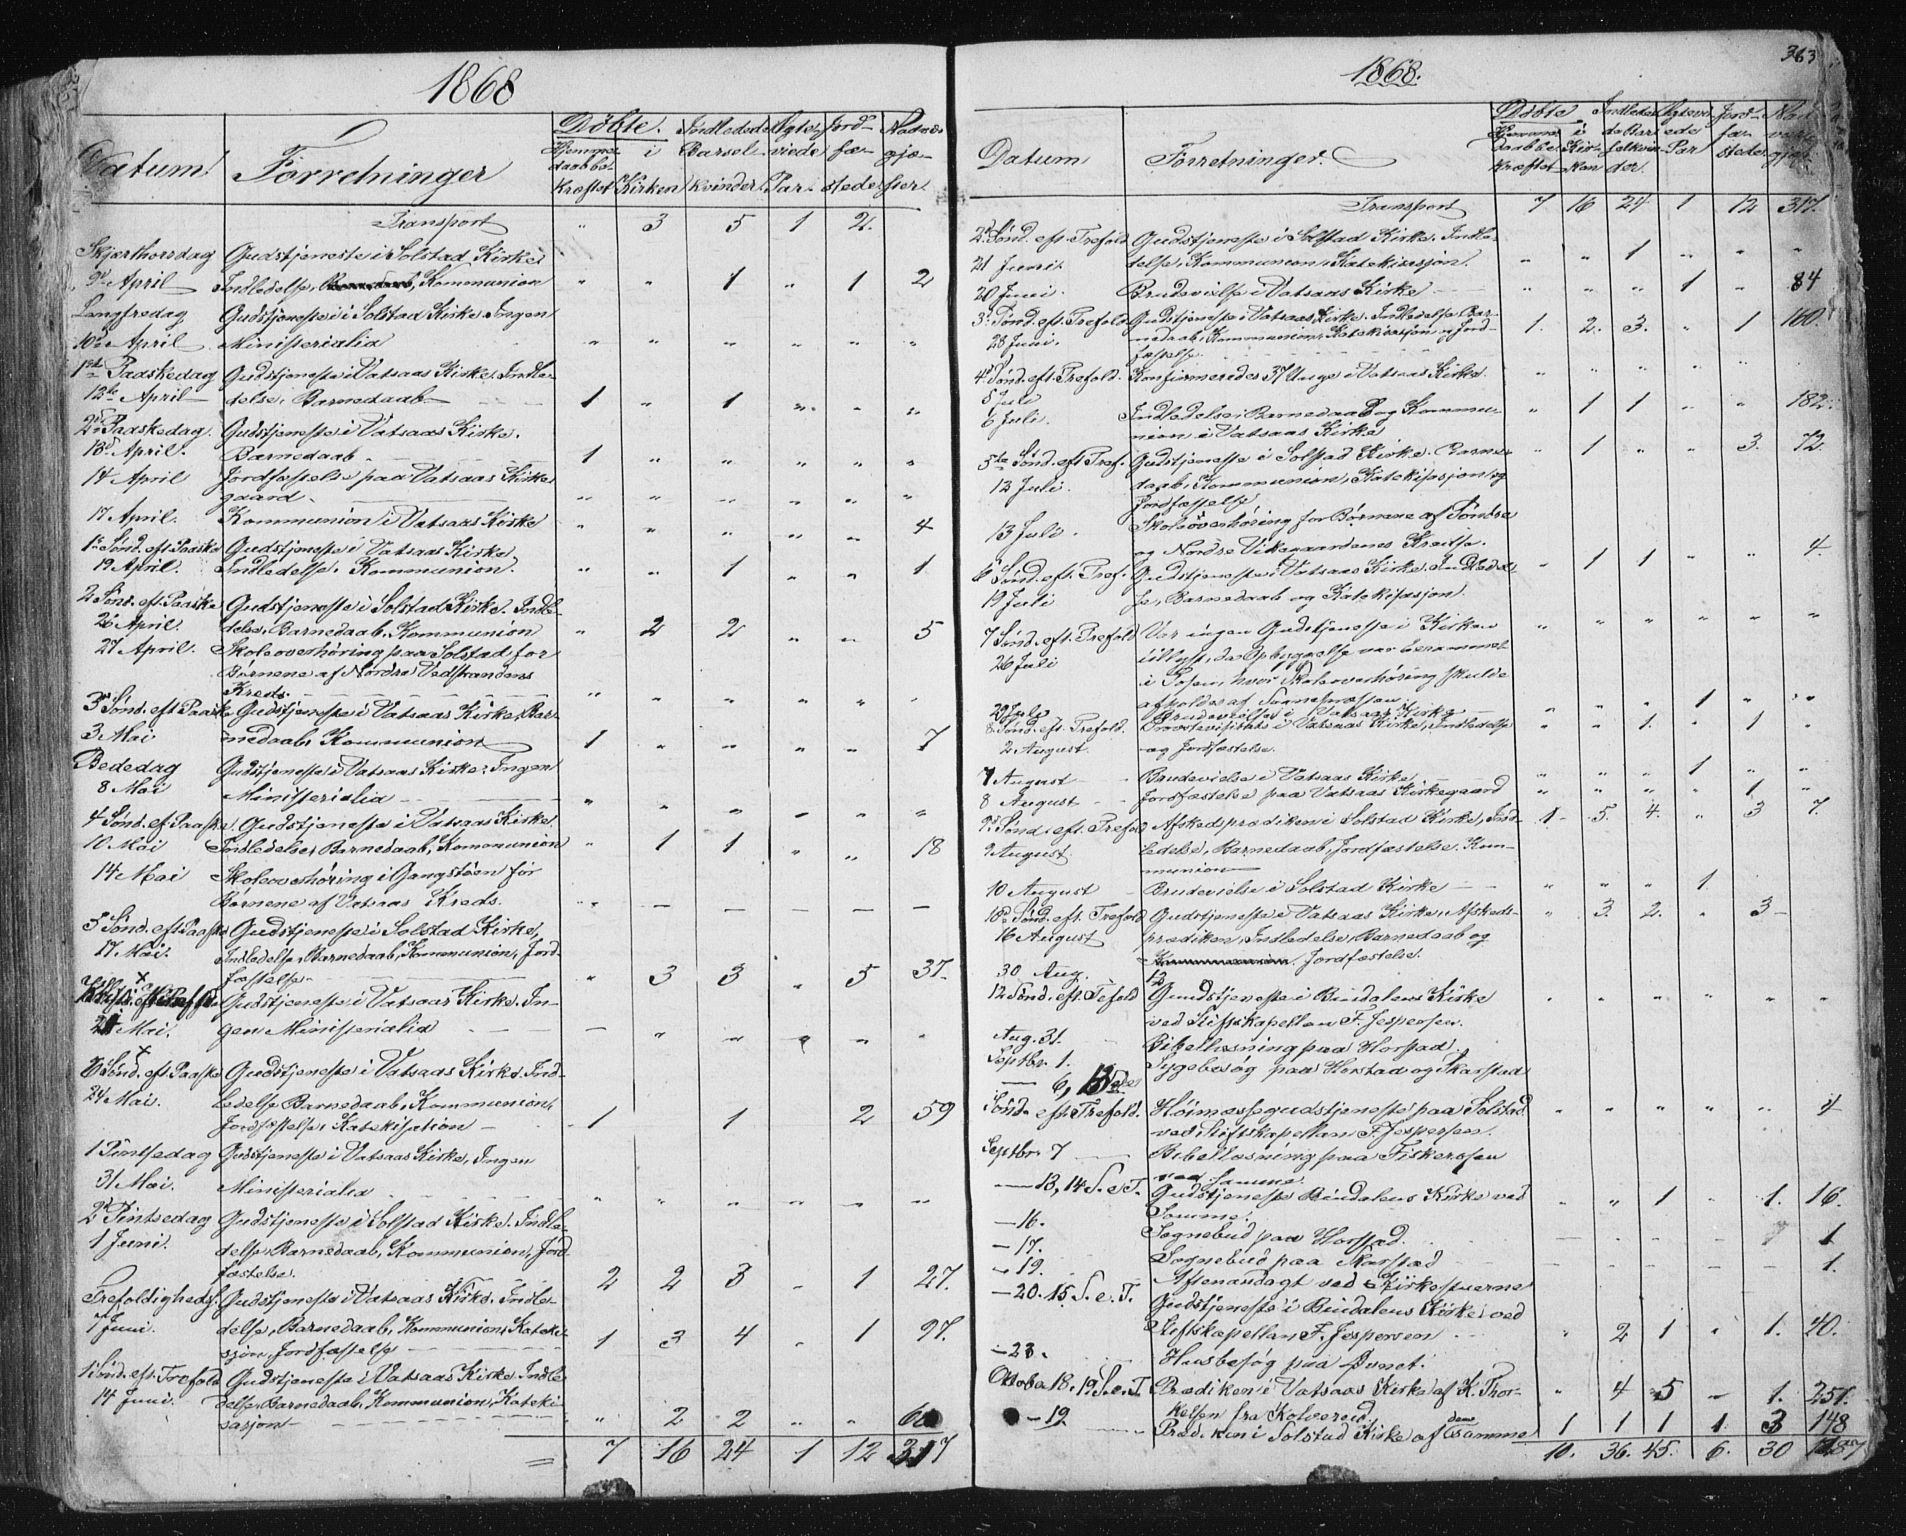 1868
Datum Forretninger Døbte. Indledede Barselkvinder Ægteviede Par Jordfæstede Nadvergjæster
Hjemmedaab bekræftet i Kirken
Transport " 3 5 1 2.
Skjærthorsdag Gudstjeneste i Solstad Kirke
9d April Indledelse, Kommunion " " 1 " 1 2
Langfredag Gudstjeneste i Solstad Kirke Ingen
10de April Ministerialia " " " " " "
1ste Paaskedag Gudstjeneste i Vatsaas Kirke. Indle-
12te April delse, Barnedaab 1 " 1 " " "
2d Paaskedag. Gudstjeneste i Vatsaas Kirke.
13d April. Barnedaab 1 " " " " "
14 April Jordfæstelse paa Vatsaas Kirke
gaard. " " " " " "
17 April. Kommunion i Vatsaas Kirke " " " " " 4
1e Sønd. eft. Paaske Gudstjeneste i Vatsaas Kirke
19 April. Indledelse. Kommunion. " " 1 " " 1
2 Sønd. eft. Paaske Gudstjeneste i Solstad Kirke. Indle-
26 April. delse, Barnedaab, Kommunion " 2 2 " " 5
27 April. Skoleoverhøring paa Solstad for
Børnene af Nordre Vedstrandens
Kreds. " " " " " "
3d Sønd. eft Paaske Gudstjeneste i Vatsaas Kirke, Bar-
3 Mai nedaab, Kommunion 1 " " " " 7
Bededag Gudstjeneste i Vatsaas Kirke, Ingen
8 Mai Ministerialia " " " " " "
4 Sønd. ef. Paaske Gudstjeneste i Vatsaas Kirke.
10 Mai Indledelse, Barnedaab, Kommunion " 1 1 " " 18
14 Mai Skoleoverhøring i Gangstøen for
Børnene af Vatsaas Kreds. " " — — — —
5 Sønd. eft Paaske Gudstjeneste i Solstad Kirke,
17 Mai. Indledelse, Barnedaab, Kommunion, Jord-
fæstelse " 3 3 " 5 37.
Gudstjeneste i Vatsaas Kirke. In-
21 Mai. gen Ministerialia — " " " " "
6 Sønd. eft. Paaske Gudstjeneste i Vatsaas Kirke. Ind-
24 Mai. ledelse Barnedaab, Kommunion,
Jordfæstelse, Katekisation 1 1 2 59
1 Pintsedag Gudstjeneste i Vatsaas Kirke, Ingen
31 Mai. Ministerialia " " " " " "
2d Pintsedag Gudstjeneste i Solstad Kirke. Indle-
1 Juni. delse, Barnedaab, Kommunion, Jord
fæstelse. 2 2 3 " 1 27.
Trefoldigheds. Gudstjeneste i Vatsaas Kirke. Indle-
7 Juni. delse, Barnedaab, Kommunion, Kateki-
sjon, Jordfæstelse 1 3 4 " 1 97.
1 Sønd. eft. Trefold Gudstjeneste i Vatsaas Kirke Indle
14 Juni. delse, Barnedaab, Kommunion, Kateki-
sasjon " 2 2 " "
= 7 16 24 1 12 317
363
1868.
Datum Forretninger. Døbte Indledede Barselkvinder Ægteviede Par Jordfæstede
Hjemmedaab bekræftet i Kirken
Transport 7 16 24 1 12 317.
2d Sønd. eft. Trefold. Gudstjeneste i Solstad Kirke. Indle-
21 Juni delse, Kommunion, Katekisasjon. " " 1 " " "
20 Juni. Brudevielse i Vatsaas Kirke " " " 1 " 84
3d Sønd. eft. Trefold Gudstjeneste i Vatsaas Kirke. Indledelse Bar-
28 Juni. nedaab, Kommunion, Katekisasjon og Jord- 1. 2. 3. " 1 160.
fæstelse
4d Sønd. eft. Trefold. Konfirmeredes 37 Unge i Vatsaas Kirke.
5 Juli " " " " "
6 Juli. Indledelse, Barnedaab og Kommu- " 1 1 " " 182.
nion i Vatsaas Kirke
5te Sønd. eft Tref. Gudstjeneste i Solstad Kirke. Barne- " 1 " " 3. 72.
12 Juli. daab, Kommunion, Katekisasjon og
Jordfæstelse
13 Juli. Skoleoverhøring for Børnene af Søndre
og Nordre Vikegaardenes Kredse.
6 Sønd. eft. Tref. Gudstjeneste i Vatsaas Kirke. Indledel- " 1 1 " " 4.
19 Juli se, Barnedaab og Katekisasjon.
7 Sønd. eft. Trefold Var ingen Gudstjeneste i Kirken " " " " " "
26 Juli tillyst, da Opbyggelse var berammet
i Posen, hvor Skoleoverhøring skulde
afholdes af Sognepræsten
29 Juli Brudevielse i Vatsaas Kirke " " " 1 " "
8 Sønd. eft. Trefold. Provstevisitats i Vatsaas Kirke, Indledelse " " 1. " 1 "
2 August. og Jordfæstelse.
7 August Brudevielse i Vatsaas Kirke " " " 1 " "
8 August Jordfæstelse paa Vatsaas Kirkegaard " " " " 1 "
9d Sønd. eft. Trefold Afskedsprædiken i Solstad Kirke, Ind- 1 5. 4. " 3 7.
9 August. ledelse, Barnedaab, Jordfæstelse. Kom-
munion
10 August Brudevielse i Solstad Kirke " " " 1.
10d Sønd. eft. Trefold Gudstjeneste i Vatsaas Kirke, Afskeds- " 3. 2. " 3 —
16 August prædiken, Indledelse, Barnedaab og
Jordfæstelse.
30 Aug. 12
12 Sønd. eft. Tefold Gundstjeneste i Bindalens Kirke " " " " " "
ved Stiftskapellan F. Jespersen.
Aug. 31. Bibellæsning paa Horstad.
Septbr. 1. Sygebesøg paa Horstad og Skarstad
— 6, 13de
Sønd. eft. Trefold. Høimessegudstjeneste paa Solstad " " " " " 4
ved Stiftskapellan F. Jespersen.
Septbr. 7 Bibellæsning paa Fiskerosen
ved samme.
— 13, 14 S. e. T. Gudstjeneste Bindalens Kirke ved " " 1 " 1. 16.
Samme.
— 16. Sognebud paa Horstad. 1
— 17. Sognebud paa Skarstad 1.
— 19. Aftenandagt ved Kirkestuerne
— 20. 15. S. e. T. Gudstjeneste i Bindalens Kirke ved
Stiftskapellan F. Jespersen " 2 1 " 1. 40.
— 23. Husbesøg paa
Oktober 18. 19. S. e. T. Prædiken i Vatsaas Kirke af K. Thor- " 4 5 — 1. 251.
kelsen fra Kolvereid.
— 19 Prædiken i Solstad Kirke af densamme 1 1 1 1. 3 148
10. 36. 45. 6. 30